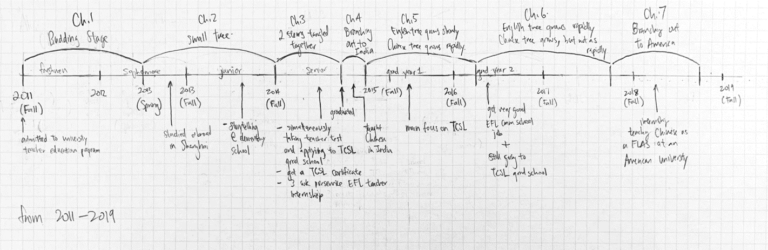 Ch.1
Budding Stage
Ch.2
small tree
Ch.3
2 stems tangled
together
Ch.4
Branching
out to
India
Ch.5
English tree grows slowly
Chinese tree grows rapidly
Ch.6
English tree grows rapidly
Chinese tree grows, but not as
rapidly
Ch.7
Branching out
to America
freshmen
Sophomore
junior
senior
grad year 1
grad year 2
2011
(Fall)
2012
2013
(Spring)
2013
(Fall)
2014
(Fall)
2015 (Fall)
2016
(Fall)
2017
(Fall)
2018
(Fall)
2019
(Fall)
admitted to university
teacher education program
Studied abroad
in Shanghai
- Storytelling
@ elementary
school
- simultaneously
taking teacher test
and applying to TCSL
grad school
- got a TCSL certificate
- I still persevere EFL teacher
internship
graduated
taught
Chinese
in India
main focus on TCSL
got very good
EFL cram school
job
+
still going to
TCSL grad school
teaching Chinese as
a FLAS at an
American university
from 2011-2019